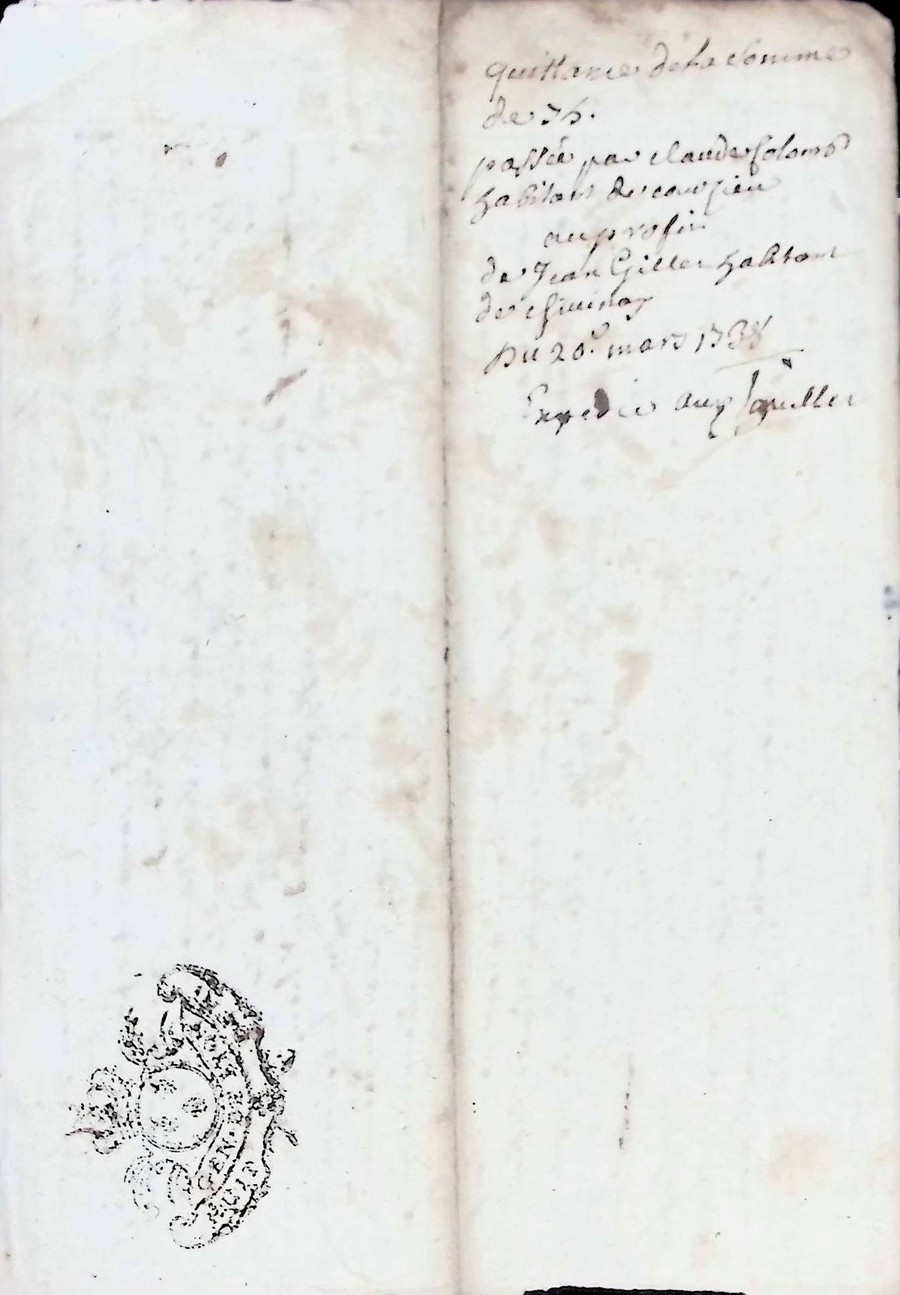 quittance de la somme
de
passée par claude Colomb
habitant de courzieu
au profit
de Jean Gilles habitant
de chevinay
Du 20e mars 1738
Expedié aux
GEN. DE